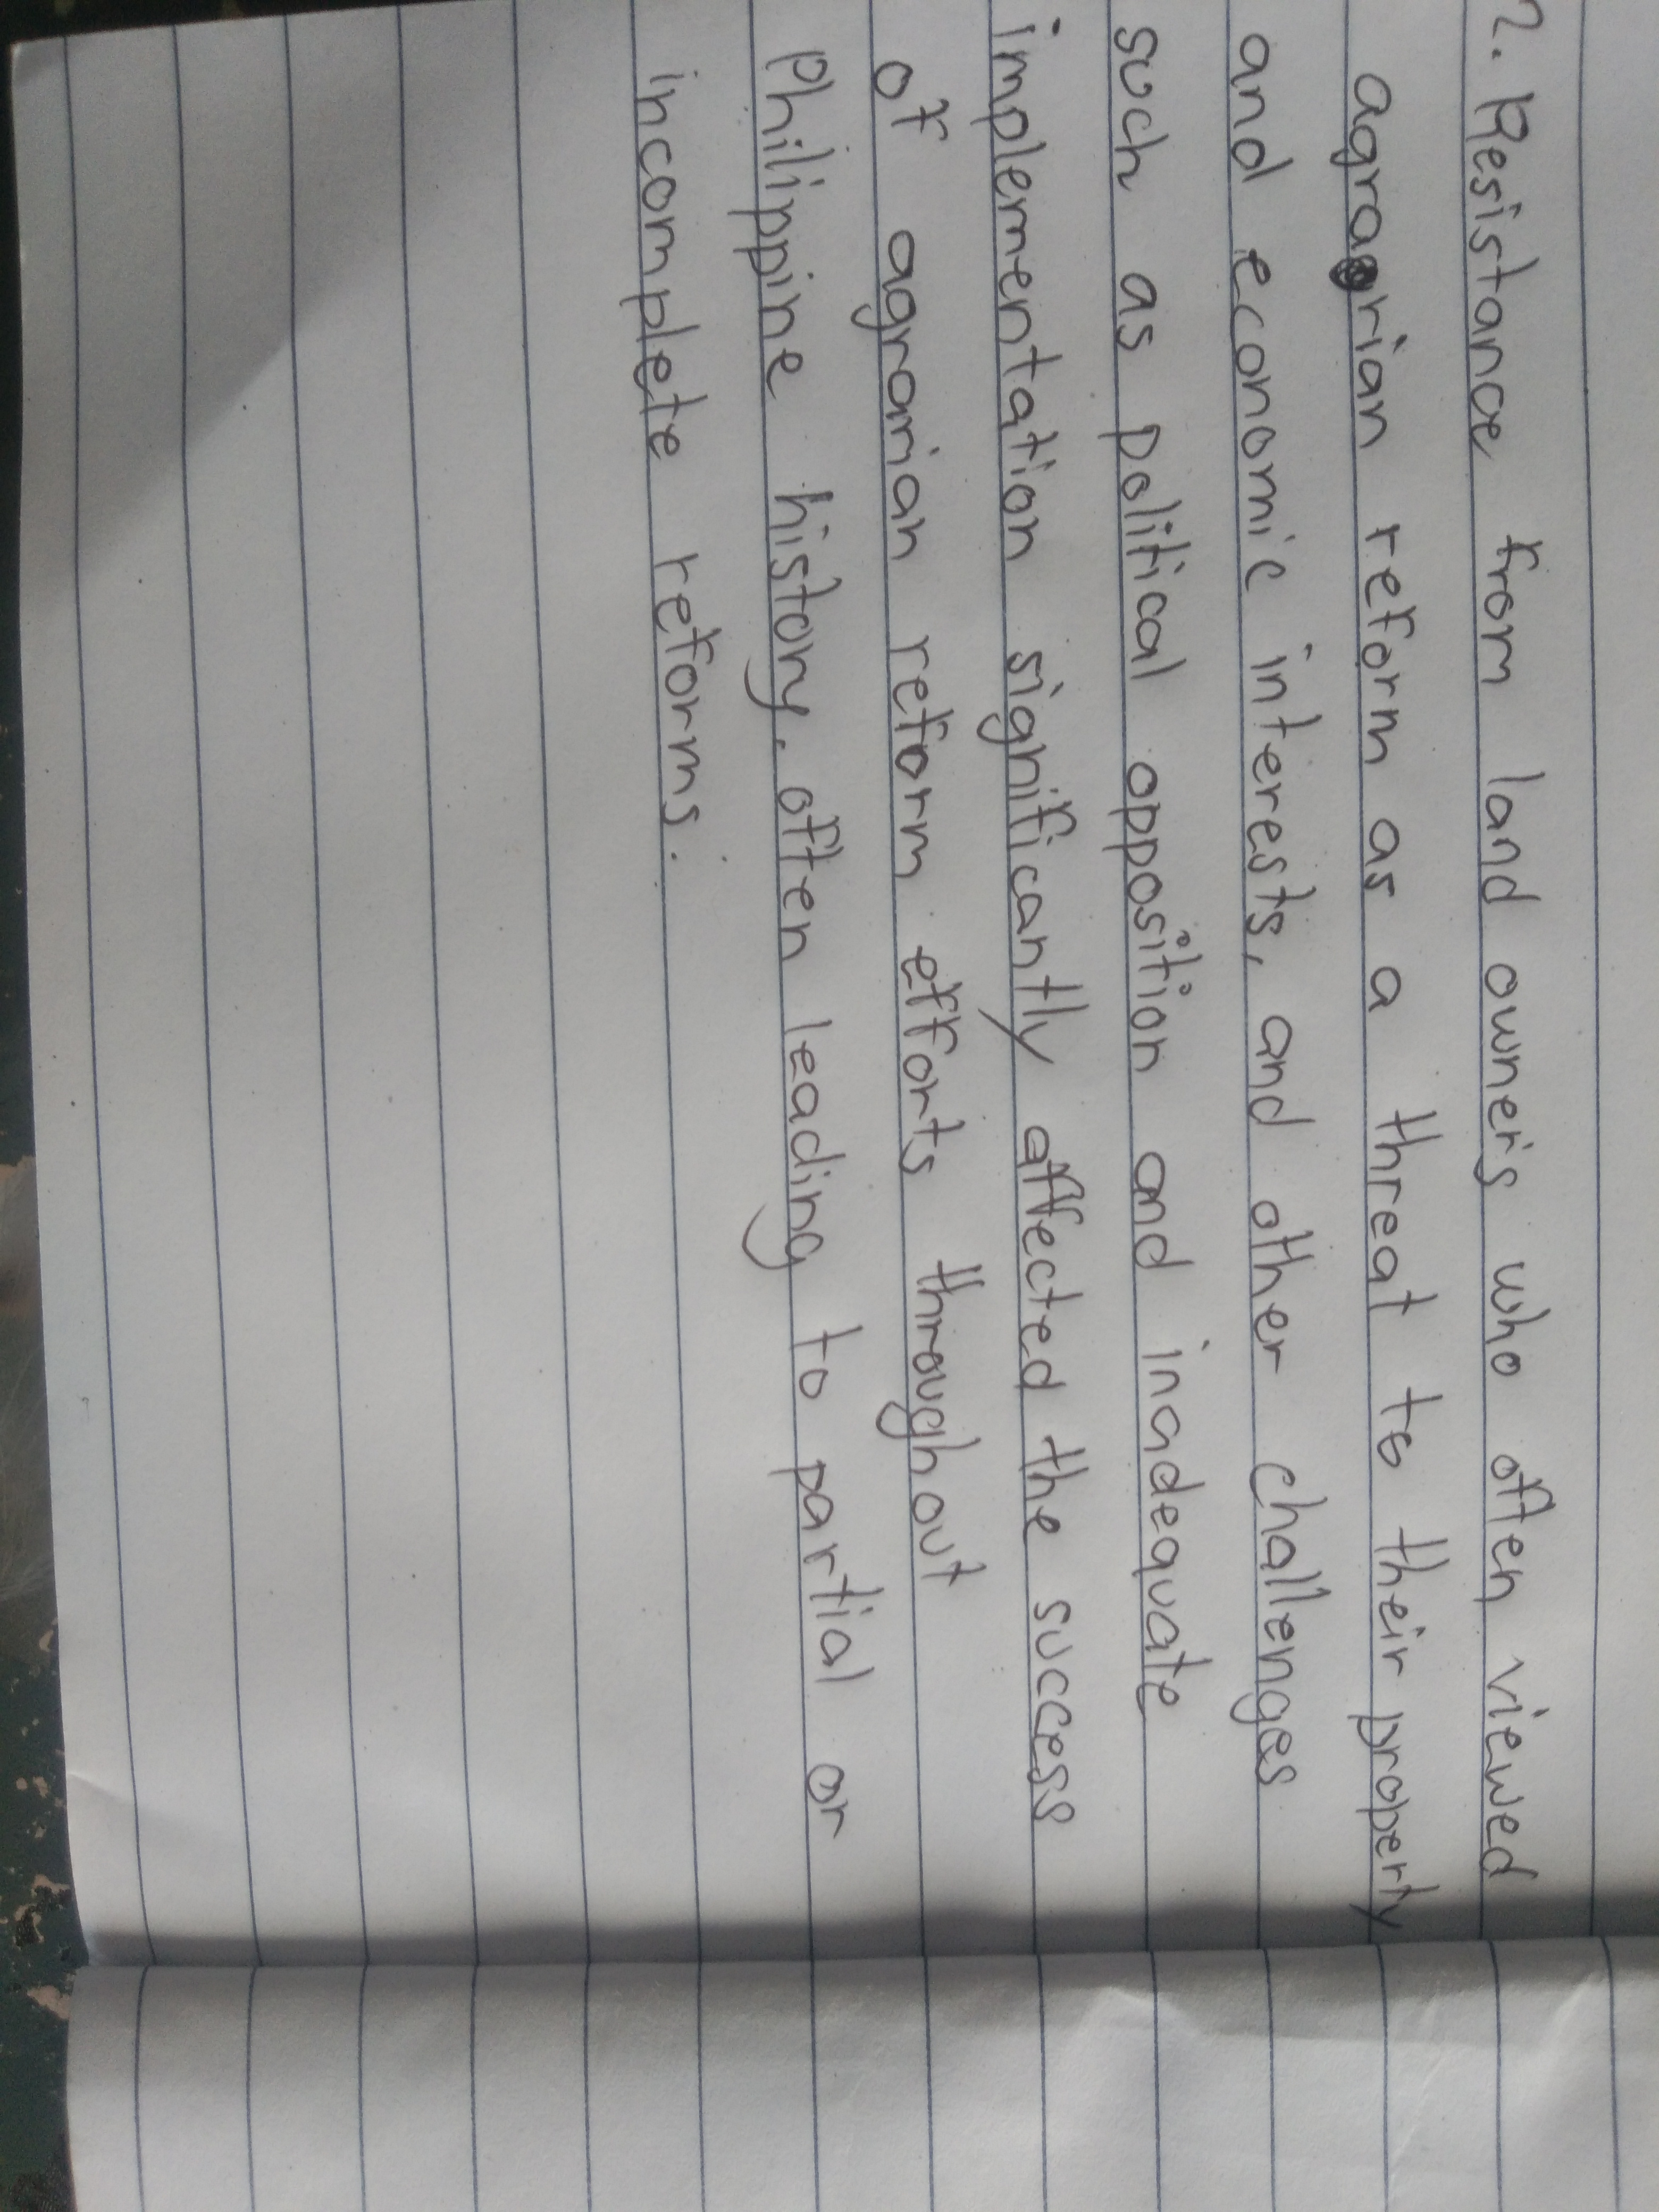 2. Resistance from land owners who often viewed
agrarian reform as a threat to their property
and economic interests, and other challenges
such as political opposition and inadequate
implementation significantly affected the success
of agrarian reform efforts throughout
Philippine history, often leading to partial or
incomplete reforms.